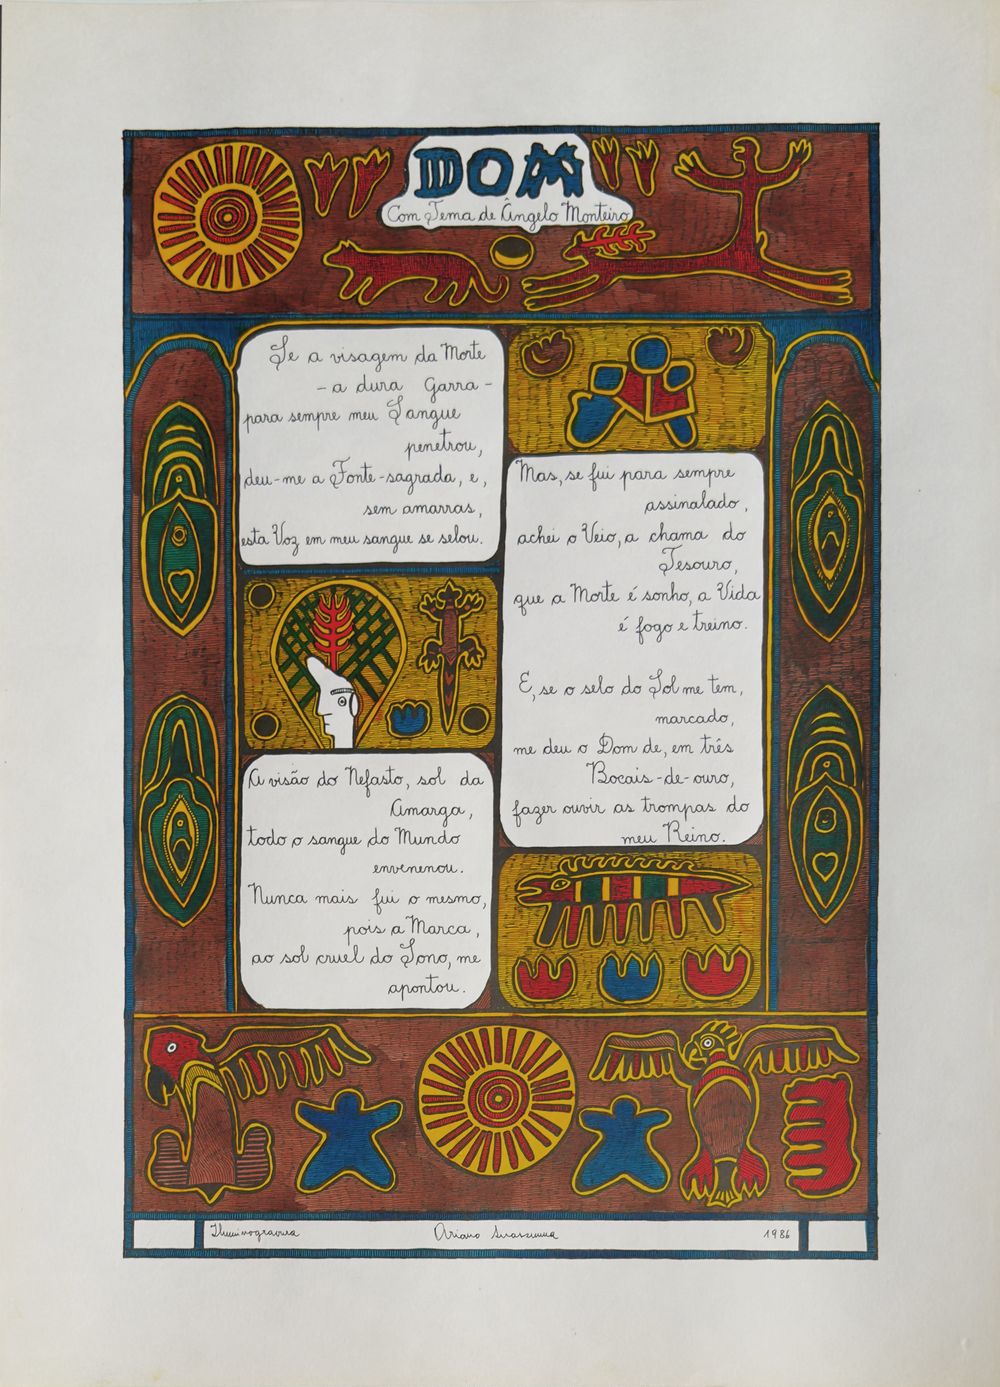 DOM
Com Tema de Ângelo Monteiro
Se a visagem da Morte
– a dura Garra –
para sempre meu Sangue
penetrou,
deu-me a Fonte-sagrada, e,
sem amarras,
esta Voz em meu sangue se selou.
A visão do Nefasto, sol da
Amarga,
todo o sangue do Mundo
envenenou.
Nunca mais fui o mesmo,
pois a Marca,
ao sol cruel do Sono, me
apontou.
Mas, se fui para sempre
assinalado,
achei o Veio, a chama do
Tesouro,
que a Morte é sonho, a Vida
é fogo e treino.
E, se o selo do Sol me tem,
marcado,
me deu o Dom de, em três
Bocais-de-ouro,
fazer ouvir as trompas do
meu Reino.
Iluminogravura
Ariano Suassuna
1986